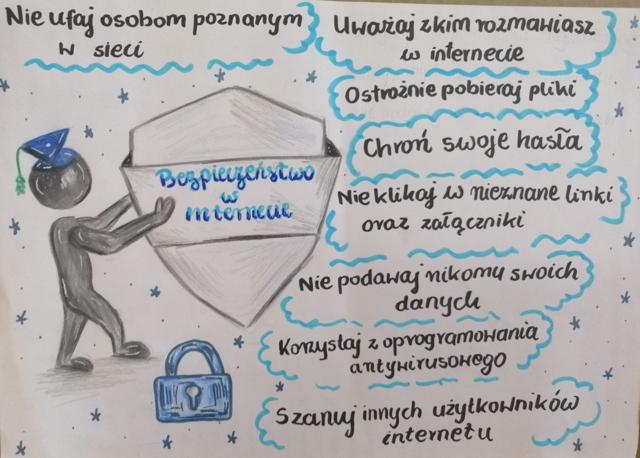 Nie ufaj osobom poznanym
w sieci
Uważaj z kim rozmawiasz
w internecie
Ostrożnie pobieraj pliki
Chroń swoje hasła
Bezpieczeństwo
w
internecie
Nie klikaj w nieznane linki
oraz załączniki
Nie podawaj nikomu swoich
danych
Korzystaj z oprogramowania
antywirusowego
Szanuj innych użytkowników
internetu